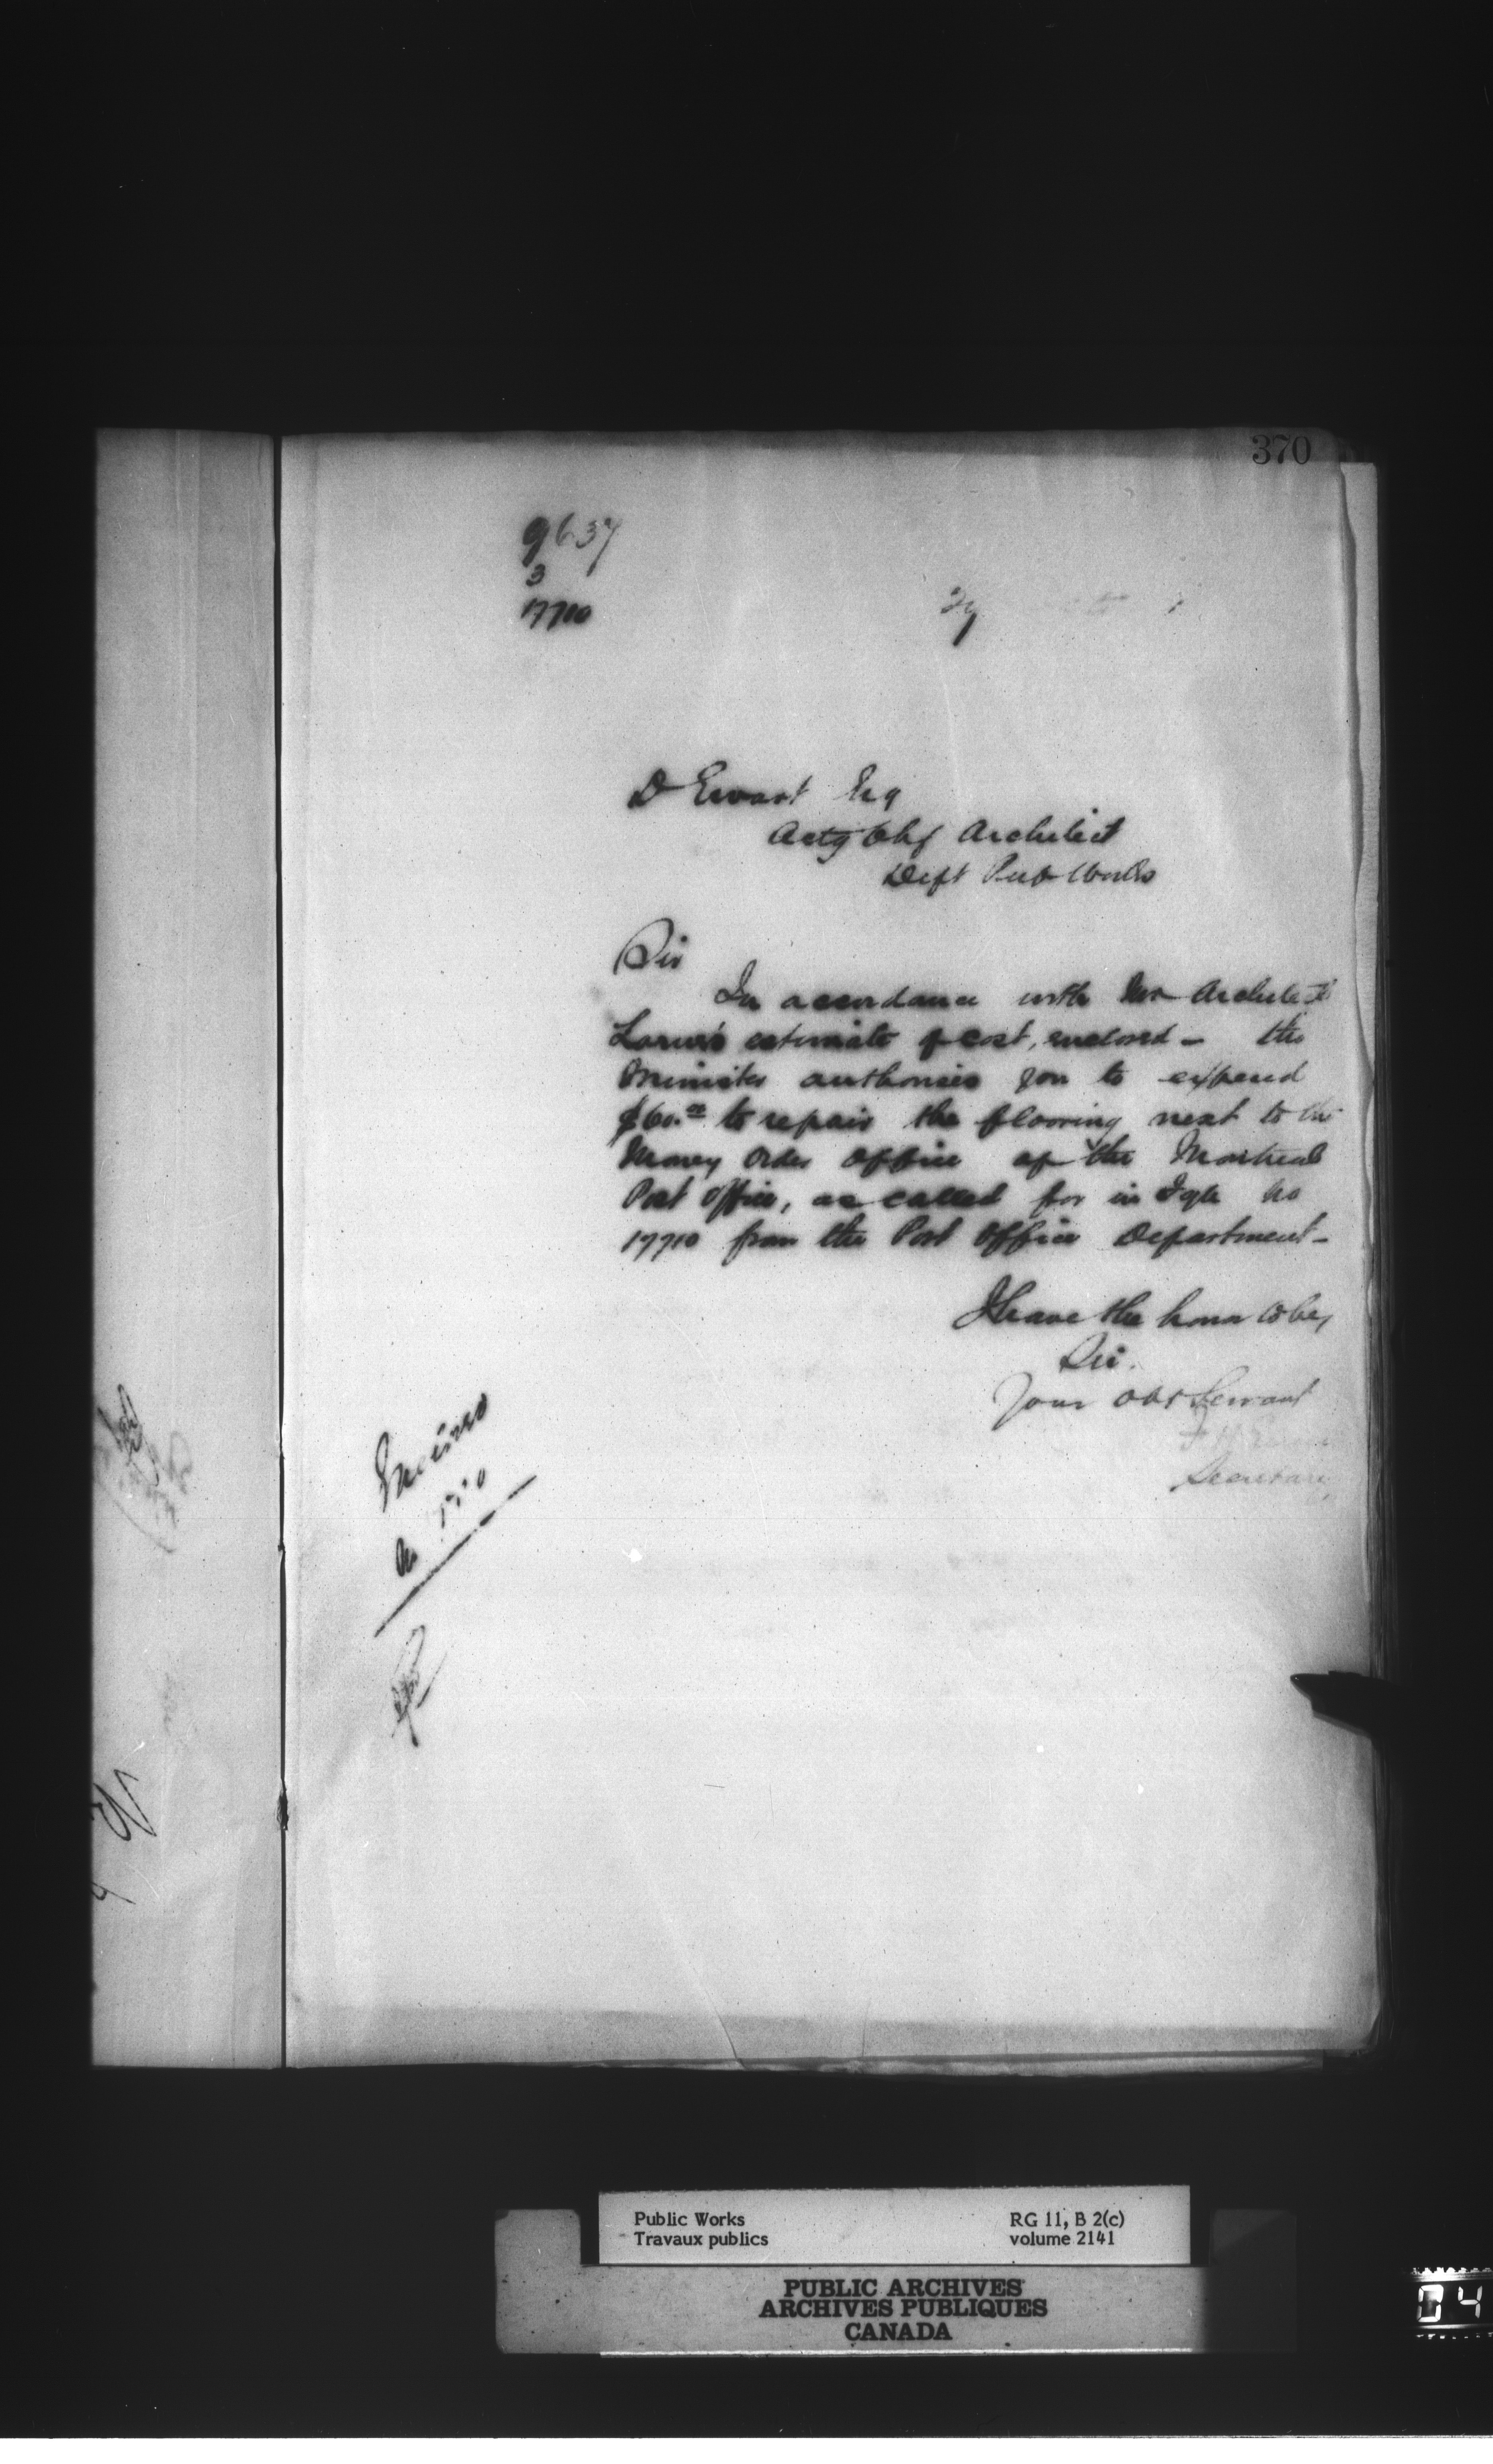 370
9637
3
17710
D Ewart Esq
Actg Chf Architect
Dept Pub Works
Sir
In accordance with Mr Architect
estimate of cost, enclosed - the
Minister authorises you to expend
$60.00 to repair the flooring next to the
Money Order Office of the Montreal
Post Office, as called for in no
17710 from the Post Office Department -
I have the honor to be,
Sir.
Your obt Servant
Secretary
Public Works
Travaux publics
RG 11, B 2(c)
volume 2141
PUBLIC ARCHIVES
ARCHIVES PUBLIQUES
CANADA
04